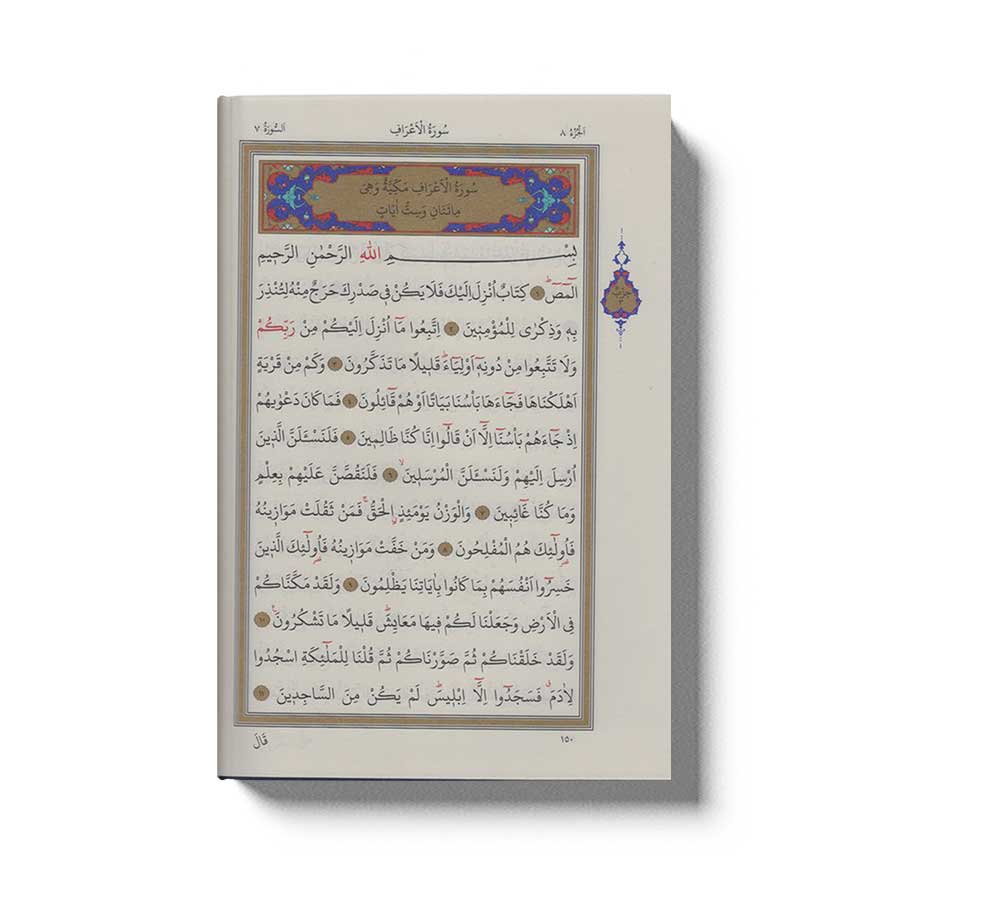 اَلْجُزْءُ ٨
سُورَةُ الْاَعْرَافِ
اَلسُّورَةُ ٧
سُورَةُ الْاَعْرَافِ مَكِّيَّةٌ وَهِيَ
مِائَتَانِ وَسِتُّ اٰيَاتٍ
بِسْمِ اللّٰهِ الرَّحْمٰنِ الرَّحٖيمِ
الٓمٓصٓ ۚ ١ كِتَابٌ اُنْزِلَ اِلَيْكَ فَلَا يَكُنْ فٖي صَدْرِكَ حَرَجٌ مِنْهُ لِتُنْذِرَ
بِهٖ وَذِكْرٰى لِلْمُؤْمِنٖينَ ٢ اِتَّبِعُوا مَٓا اُنْزِلَ اِلَيْكُمْ مِنْ رَبِّكُمْ
وَلَا تَتَّبِعُوا مِنْ دُونِهٖٓ اَوْلِيَٓاءَ ؕ قَلٖيلًا مَا تَذَكَّرُونَ ٣ وَكَمْ مِنْ قَرْيَةٍ
اَهْلَكْنَاهَا فَجَٓاءَهَا بَاْسُنَا بَيَاتًا اَوْ هُمْ قَٓائِلُونَ ٤ فَمَا كَانَ دَعْوٰيهُمْ
اِذْ جَٓاءَهُمْ بَاْسُنَٓا اِلَّٓا اَنْ قَالُٓوا اِنَّا كُنَّا ظَالِمٖينَ ٥ فَلَنَسْـَٔلَنَّ الَّذٖينَ
اُرْسِلَ اِلَيْهِمْ وَلَنَسْـَٔلَنَّ الْمُرْسَلٖينَ ۙ ٦ فَلَنَقُصَّنَّ عَلَيْهِمْ بِعِلْمٍ
وَمَا كُنَّا غَٓائِبٖينَ ٧ وَالْوَزْنُ يَوْمَئِذٍ اِلْحَقُّ ۚ فَمَنْ ثَقُلَتْ مَوَازٖينُهُ
فَاُو۬لٰٓئِكَ هُمُ الْمُفْلِحُونَ ٨ وَمَنْ خَفَّتْ مَوَازٖينُهُ فَاُو۬لٰٓئِكَ الَّذٖينَ
خَسِرُٓوا اَنْفُسَهُمْ بِمَا كَانُوا بِاٰيَاتِنَا يَظْلِمُونَ ٩ وَلَقَدْ مَكَّنَّاكُمْ
فِي الْاَرْضِ وَجَعَلْنَا لَكُمْ فٖيهَا مَعَايِشَ ؕ قَلٖيلًا مَا تَشْكُرُونَ ۟ ١٠
وَلَقَدْ خَلَقْنَاكُمْ ثُمَّ صَوَّرْنَاكُمْ ثُمَّ قُلْنَا لِلْمَلٰٓئِكَةِ اسْجُدُوا
لِاٰدَمَ ۗ فَسَجَدُٓوا اِلَّٓا اِبْلٖيسَ ؕ لَمْ يَكُنْ مِنَ السَّاجِدٖينَ ١١
١٥٠
قَالَ
حِزْبٌ